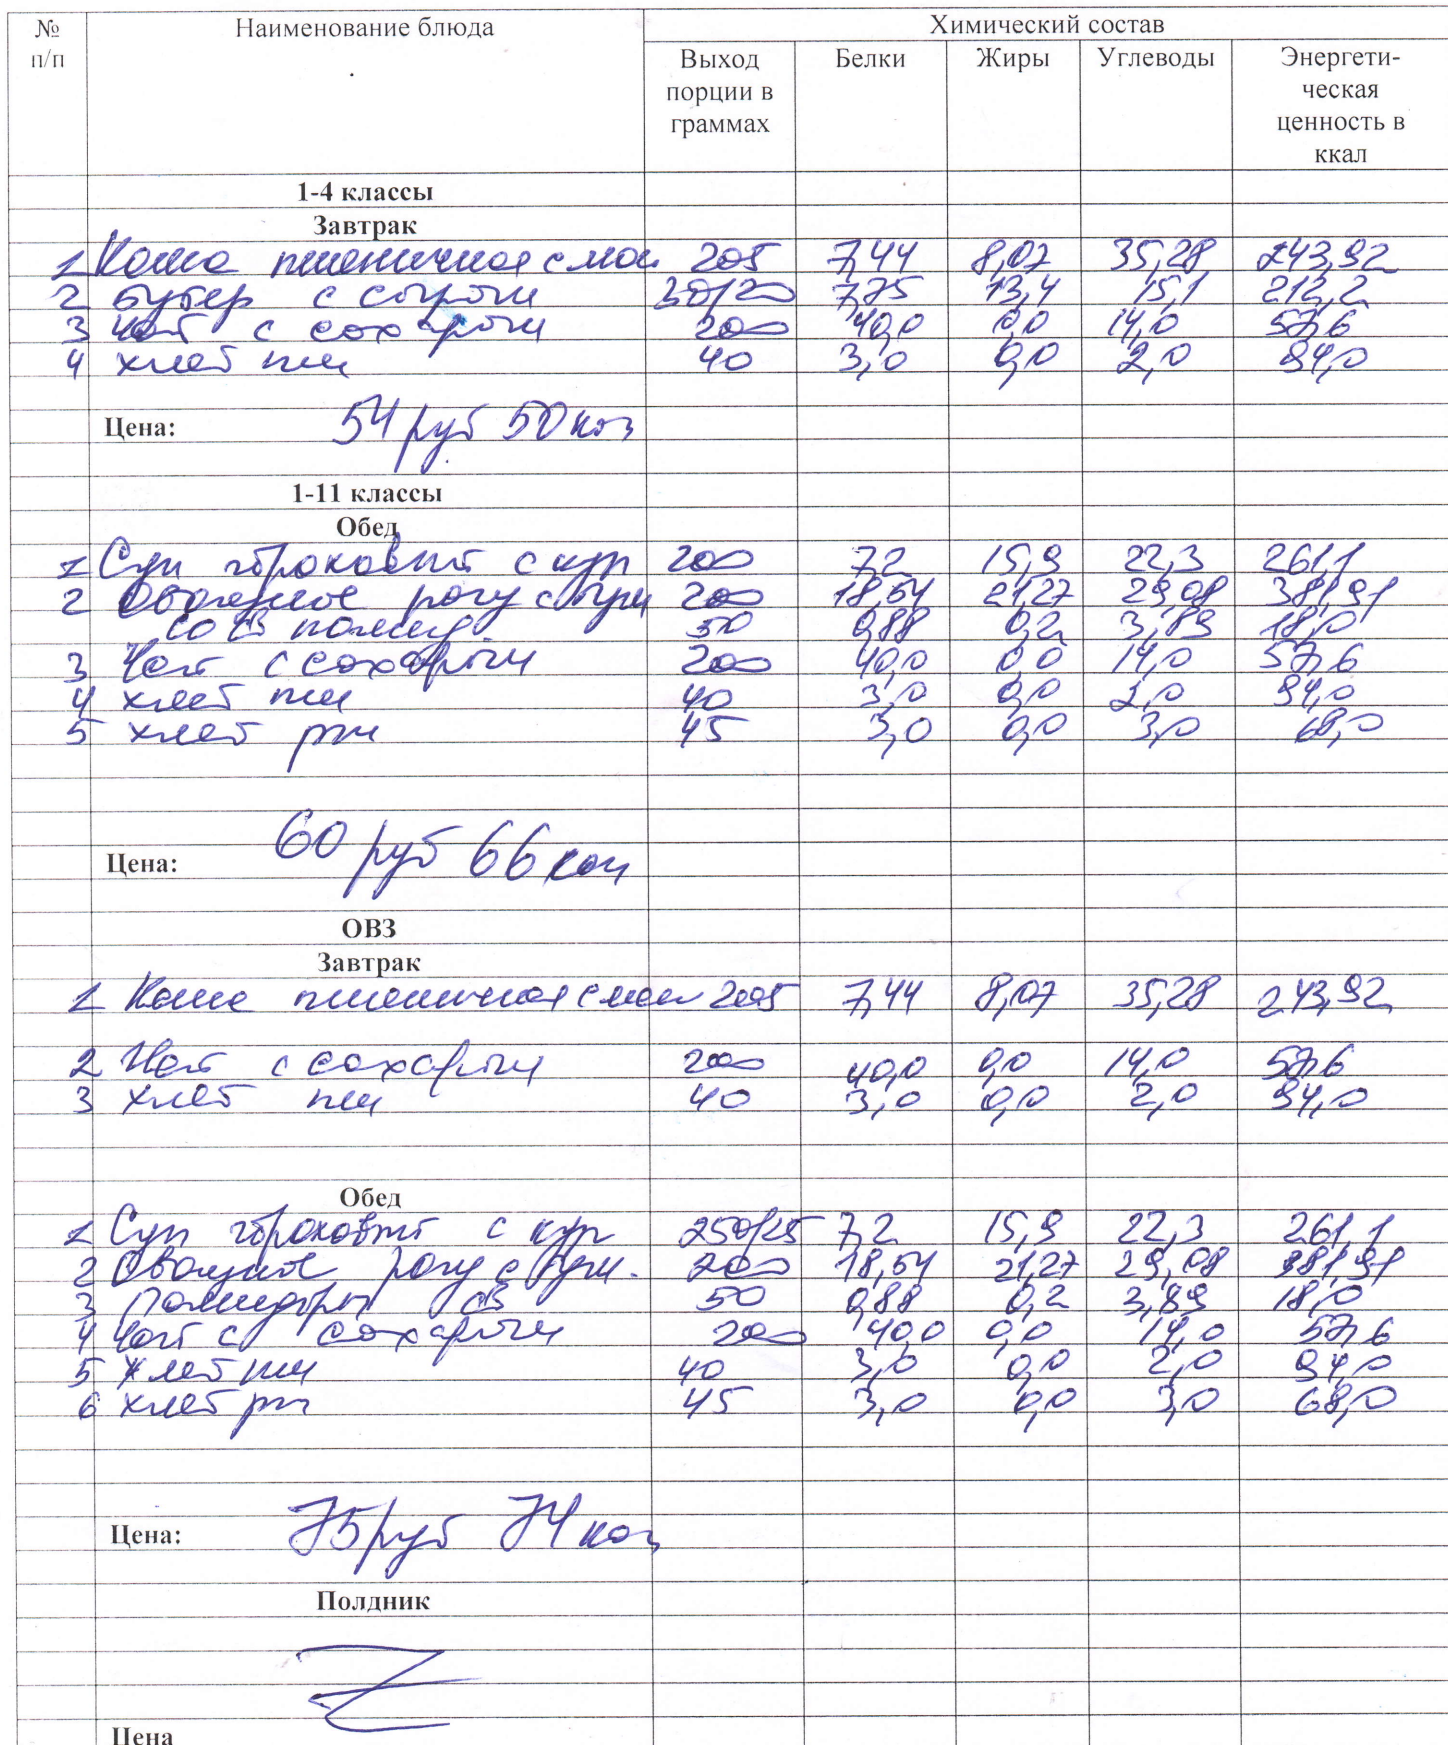 № п/п Наименование блюда Химический состав
Выход порции в граммах Белки Жиры Углеводы Энергети-ческая ценность в ккал
1-4 классы
Завтрак
1 Каша пшеничная с мас 205 7,44 8,07 35,28 243,92
2 бутер с сыром 30/20 7,75 13,4 15,1 212,2
3 Чай с сахаром 200 40,0 0,0 14,0 57,6
4 хлеб пш 40 3,0 0,0 2,0 94,0
Цена: 54 руб 50 коп
1-11 классы
Обед
1 Суп гороховый с кур 200 7,2 15,9 22,3 261,1
2 Овощное рагу с кури 200 18,54 21,27 29,08 381,91
со св помид. 50 0,88 0,2 3,89 18,0
3 Чай с сахаром 200 40,0 0,0 14,0 57,6
4 хлеб пш 40 3,0 0,0 2,0 94,0
5 хлеб рж 45 3,0 0,0 3,0 68,0
Цена: 60 руб 66 коп
ОВЗ
Завтрак
1 Каша пшеничная с мас 205 7,44 8,07 35,28 243,92
2 Чай с сахаром 200 40,0 0,0 14,0 57,6
3 хлеб пш 40 3,0 0,0 2,0 94,0
Обед
1 Суп гороховый с кур 250/25 7,2 15,9 22,3 261,1
2 Овощное рагу с кури. 200 18,54 21,27 29,08 381,91
3 Помидоры св 50 0,88 0,2 3,89 18,0
4 Чай с сахаром 200 40,0 0,0 14,0 57,6
5 хлеб пш 40 3,0 0,0 2,0 94,0
6 хлеб рж 45 3,0 0,0 3,0 68,0
Цена: 75 руб 74 коп
Полдник
Цена